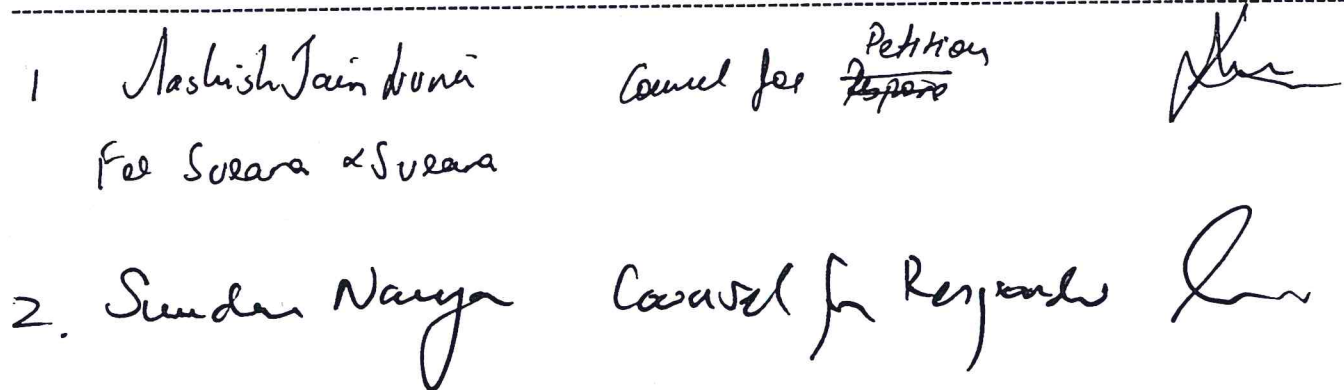 1 Aashish Jain Luniá Counsel for Petition
For Surana & Surana
2. Sundar Naraya Counsel for Respondr